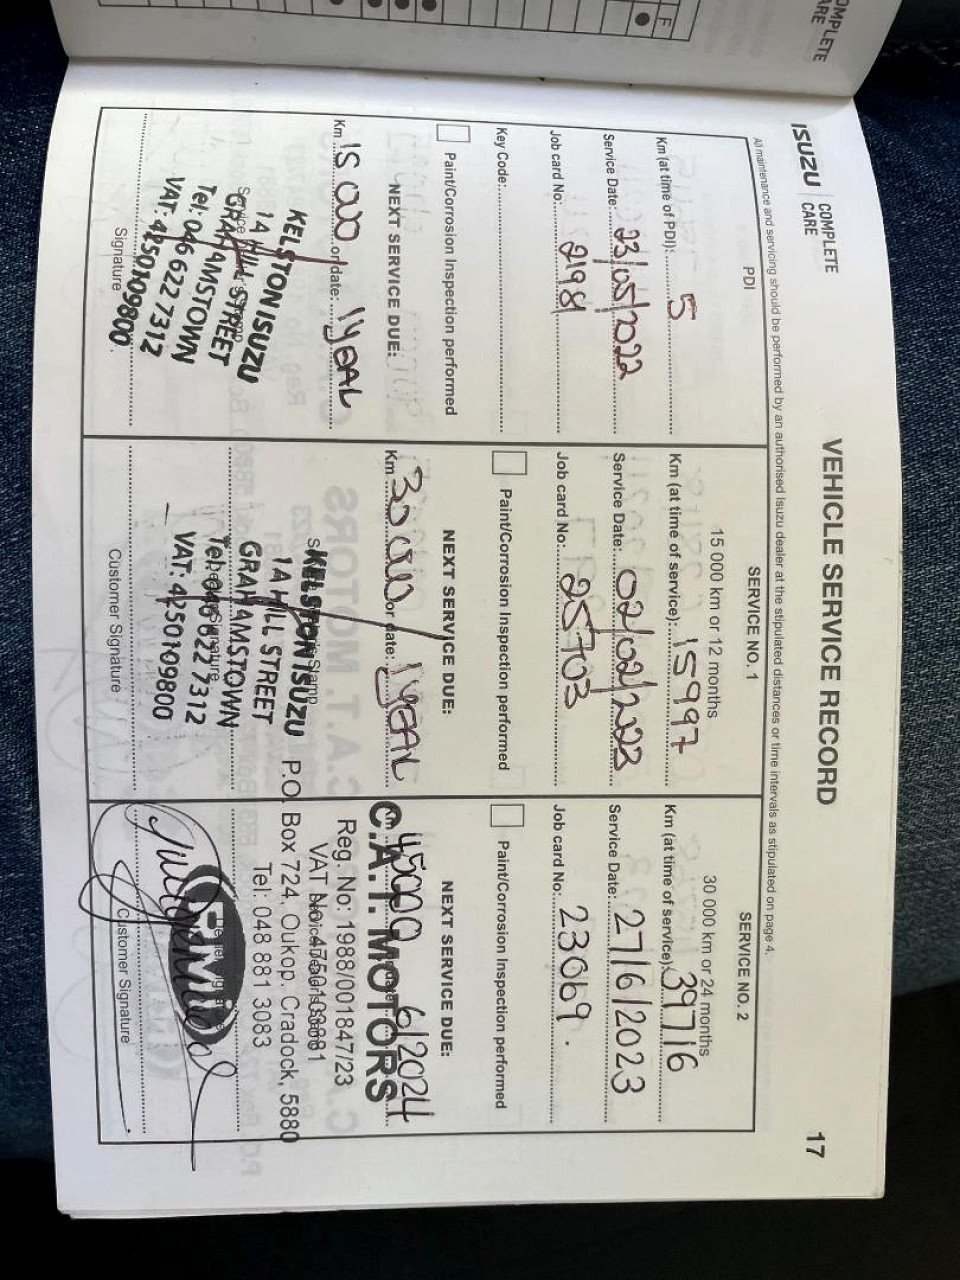 OMPLETE
ARE
F
ISUZU COMPLETE CARE
VEHICLE SERVICE RECORD
17
All maintenance and servicing should be performed by an authorised Isuzu dealer at the stipulated distances or time intervals as stipulated on page 4.
PDI
Km (at time of PDI): 5
Service Date: 23/05/2022
Job card No: 2198
Key Code:
Paint/Corrosion Inspection performed
NEXT SERVICE DUE:
Km 15 000 or date: 1 year
KELSTON ISUZU
1A HILL STREET
GRAHAMSTOWN
Tel: 046 622 7312
VAT: 4250109800
Signature
SERVICE NO. 1
15 000 km or 12 months
Km (at time of service): 15997
Service Date: 02/02/2023
Job card No: 25703
Paint/Corrosion Inspection performed
NEXT SERVICE DUE:
Km 30 000 or date: 1 year
KELSTON ISUZU
1A HILL STREET
GRAHAMSTOWN
Tel: 046 622 7312
VAT: 4250109800
Customer Signature
SERVICE NO. 2
30 000 km or 24 months
Km (at time of service): 39716
Service Date: 27/6/2023
Job card No: 23069.
Paint/Corrosion Inspection performed
NEXT SERVICE DUE:
Km 45000 6/2024
C.A.T. MOTORS
Reg. No: 1988/001847/23
VAT No:
P.O. Box 724, Oukop, Cradock, 5880
Tel: 048 881 3083
Customer Signature